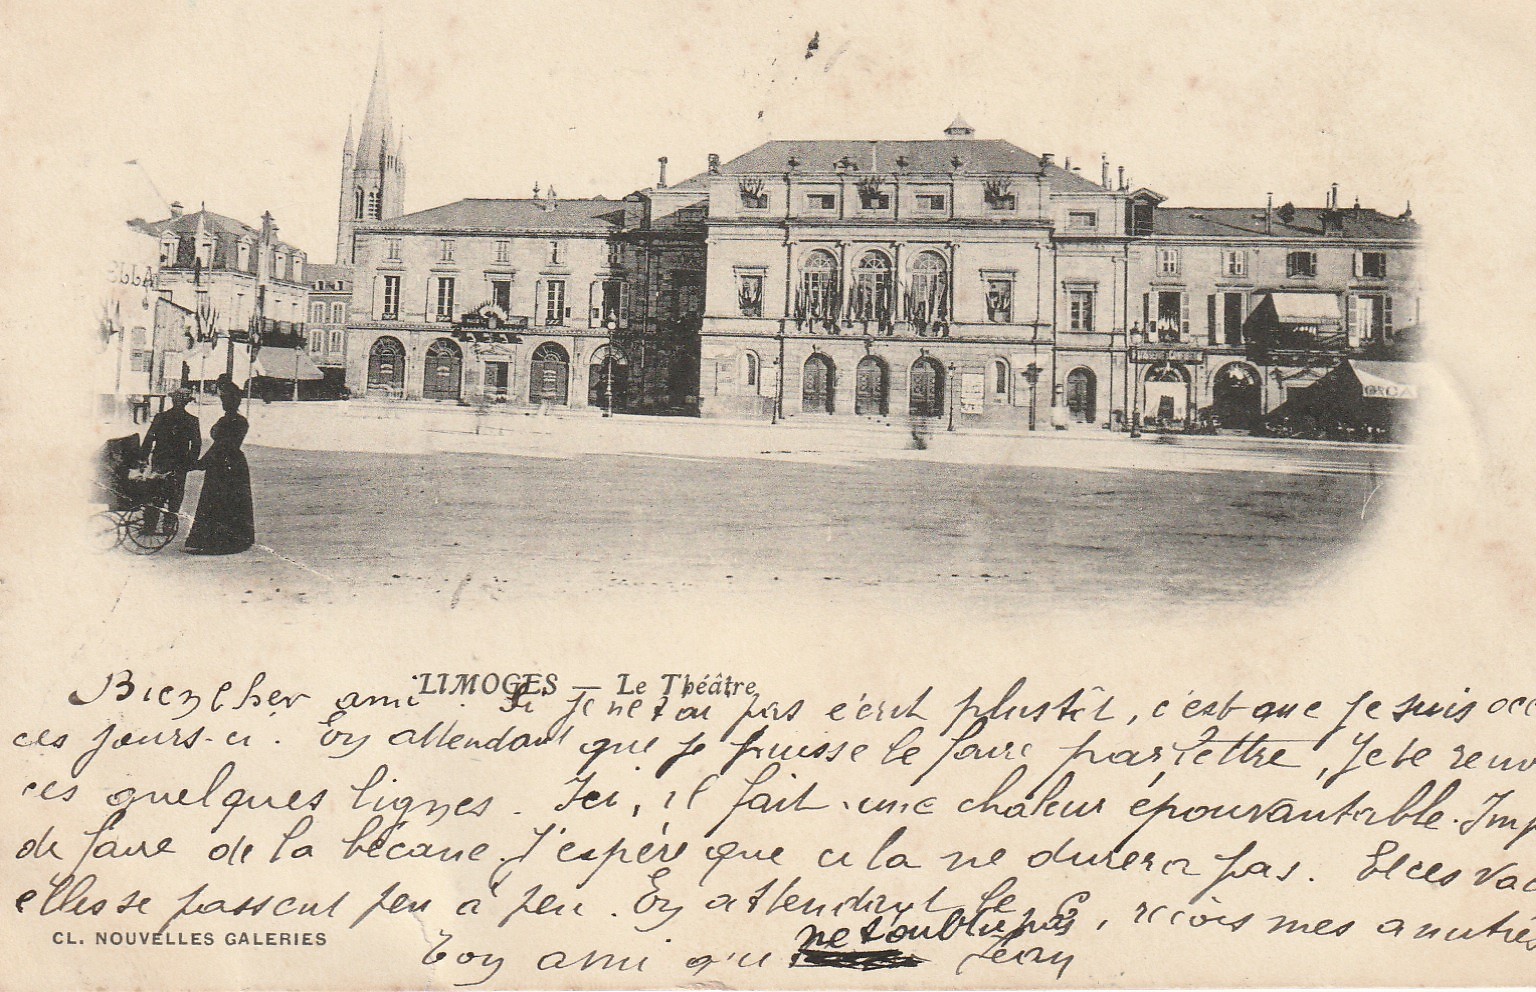 LIMOGES — Le Théâtre
Bien cher ami. Si je ne t'ai pas écrit plustôt, c'est que je suis occ
ces jours-ci. En attendant que je puisse le faire par lettre, je te
ces quelques lignes. Ici, il fait une chaleur épouvantable. Imp
de faire de la bécane. J'espère que cela ne durera pas. Et ces vac
elles se passent peu à peu. En attendant le, reçois mes amitiés
CL. NOUVELLES GALERIES
Ton ami qui ne t'oublie pas Jean